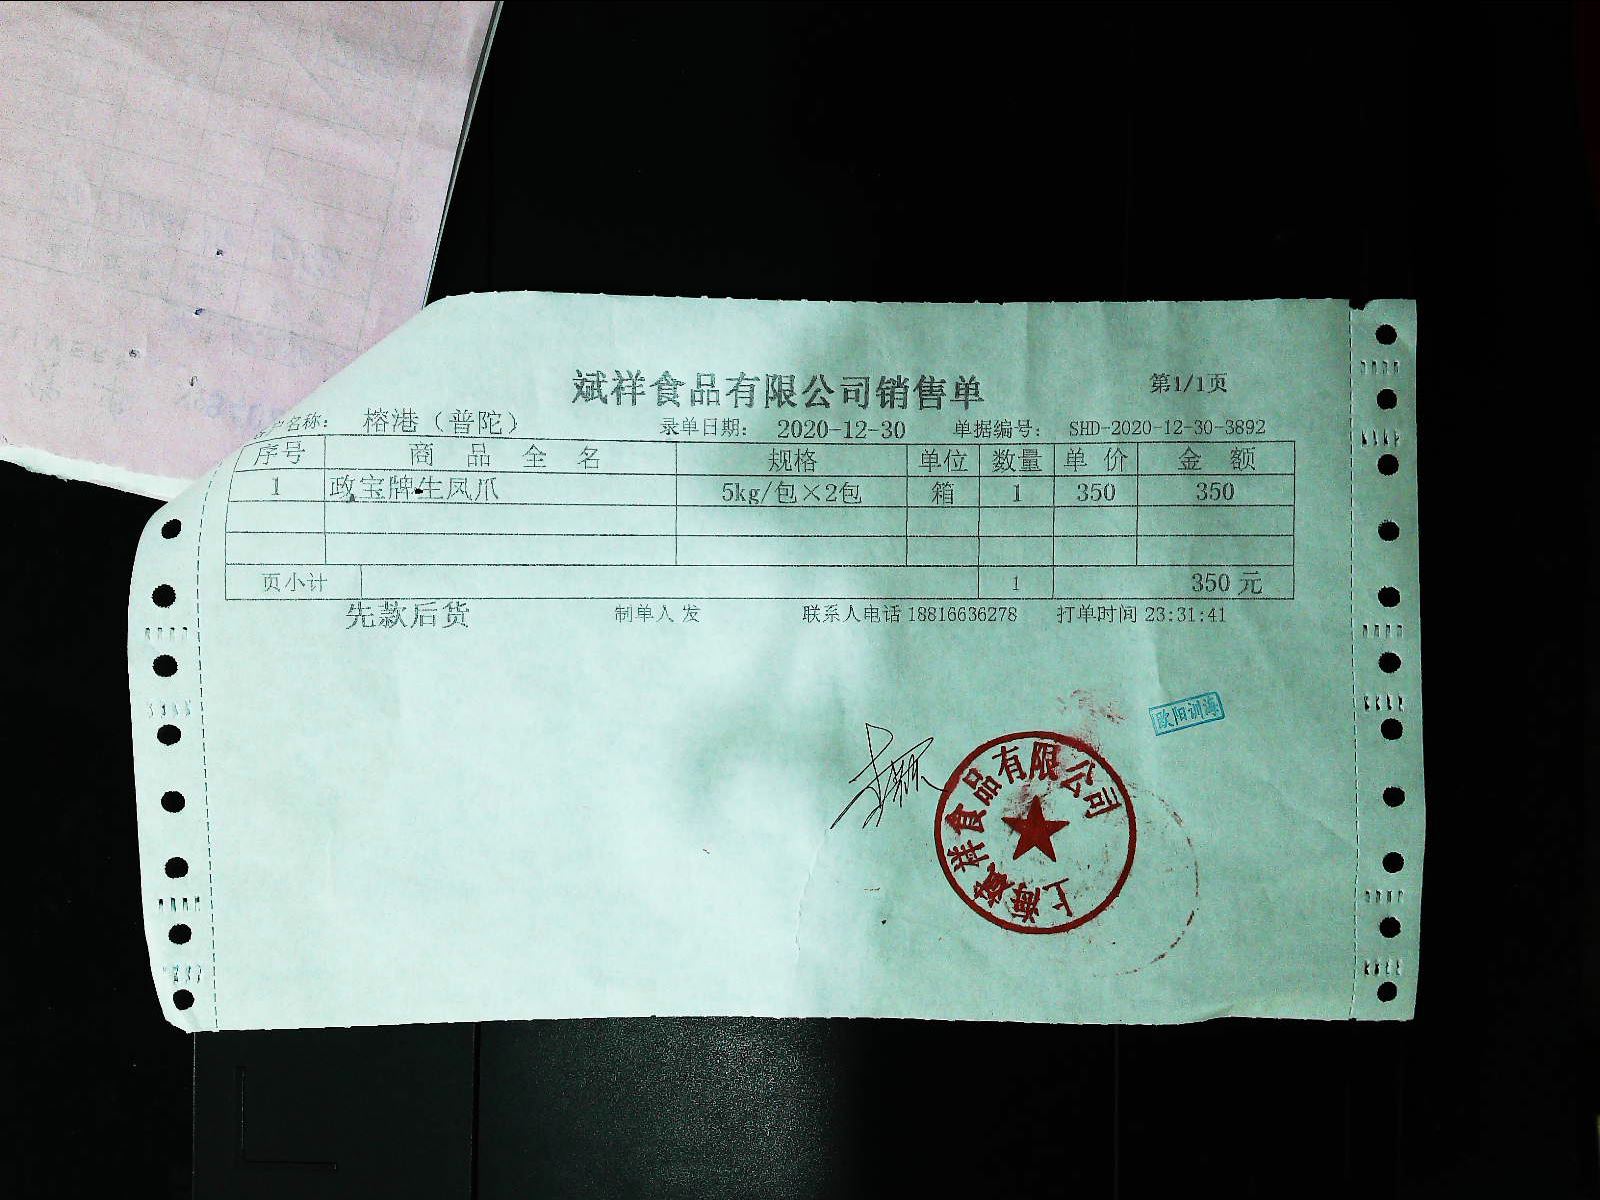 斌祥食品有限公司销售单
第1/1页
客户名称: 榕港（普陀） 录单日期: 2020-12-30 单据编号: SHD-2020-12-30-3892
序号 商品全名 规格 单位 数量 单价 金额
1 政宝牌生凤爪 5kg/包×2包 箱 1 350 350
页小计 1 350元
先款后货 制单人 发 联系人电话 18816636278 打单时间 23:31:41
欧阳训海
上海斌祥食品有限公司